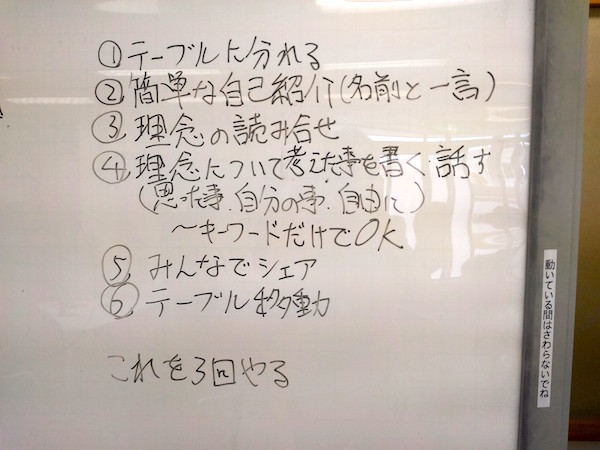 ① テーブルに分れる
② 簡単な自己紹介(名前と一言)
③ 理念の読み合せ
④ 理念について考えた事を書く・話す
(思った事、自分の事、自由に)
～キーワードだけでOK
⑤ みんなでシェア
⑥ テーブル移動
これを3回やる
動いている間はさわらないでね